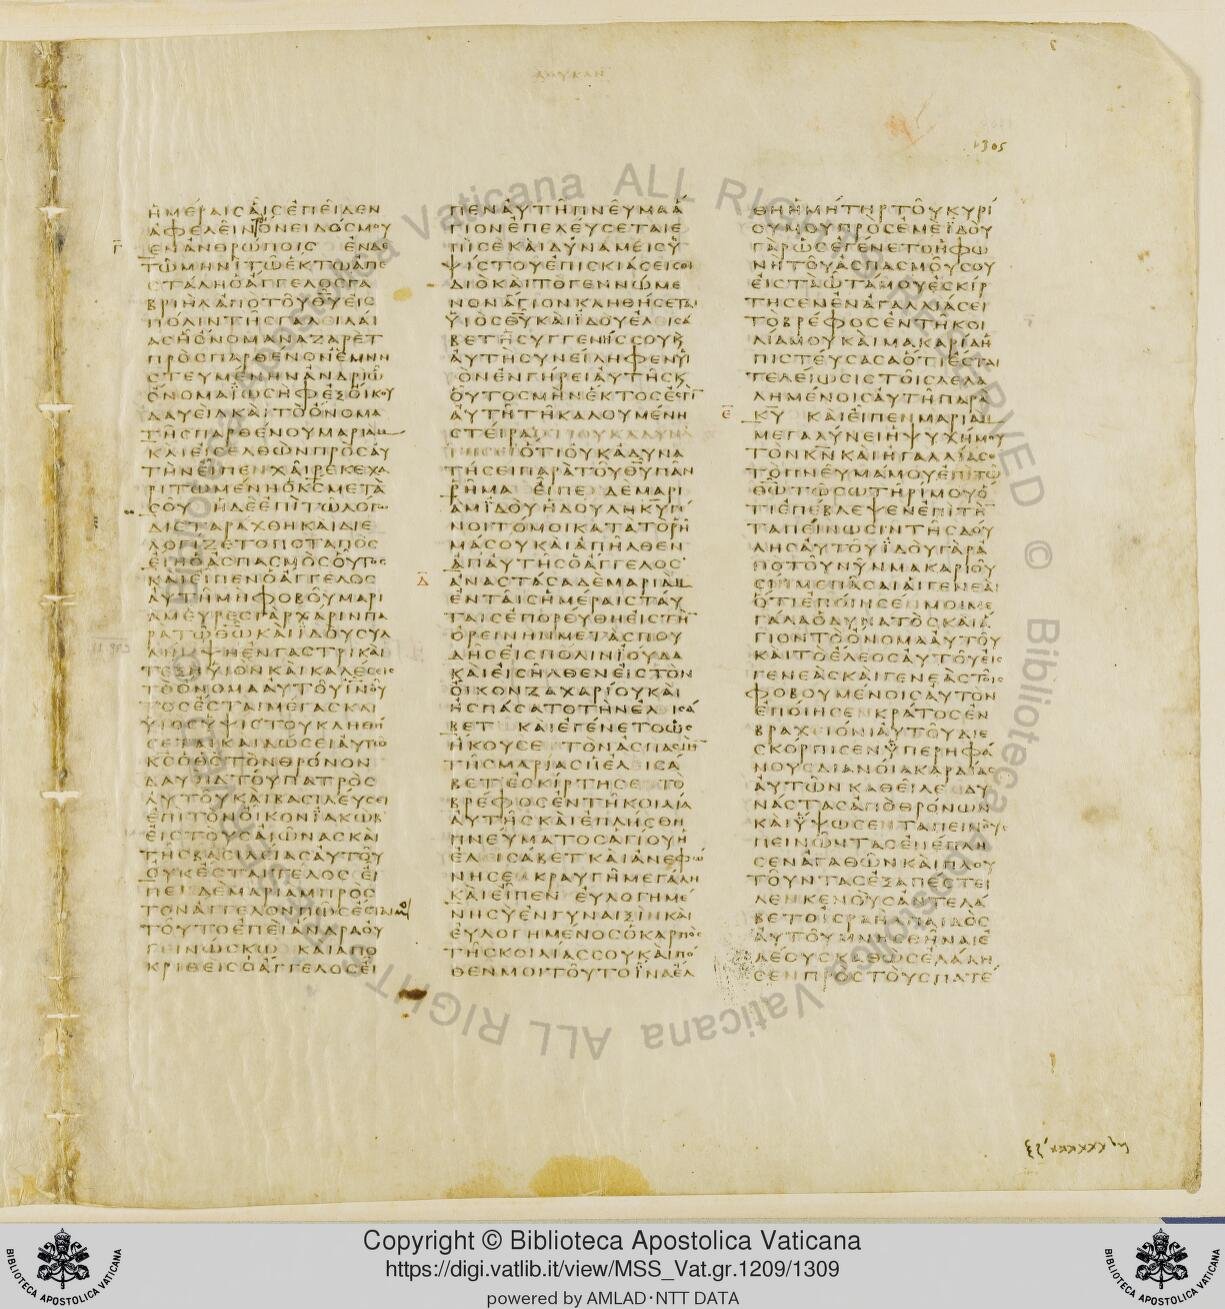 ΛΟΥΚΑΝ
1305
ΗΜΕΡΑΙΣ ΑΙΣ ΕΠΕΙΔΕΝ
ΑΦΕΛΕΙΝ ΟΝΕΙΔΟΣ ΜΟΥ
Γ
ΕΝ ΑΝΘΡΩΠΟΙΣ ΕΝ ΔΕ
ΤΩ ΜΗΝΙ ΤΩ ΕΚΤΩ ΑΠΕ
ΣΤΑΛΗ Ο ΑΓΓΕΛΟΣ ΓΑ
ΒΡΙΗΛ ΑΠΟ ΤΟΥ ΘΥ ΕΙΣ
ΠΟΛΙΝ ΤΗΣ ΓΑΛΕΙΛΑΙ
ΑΣ Η ΟΝΟΜΑ ΝΑΖΑΡΕΤ
ΠΡΟΣ ΠΑΡΘΕΝΟΝ ΕΜΝΗ
ΣΤΕΥΜΕΝΗΝ ΑΝΔΡΙ Ω
ΟΝΟΜΑ ΙΩΣΗΦ ΕΞ ΟΙΚΟΥ
ΔΑΥΕΙΔ ΚΑΙ ΤΟ ΟΝΟΜΑ
ΤΗΣ ΠΑΡΘΕΝΟΥ ΜΑΡΙΑΜ
ΚΑΙ ΕΙΣΕΛΘΩΝ ΠΡΟΣ ΑΥ
ΤΗΝ ΕΙΠΕΝ ΧΑΙΡΕ ΚΕΧΑ
ΡΙΤΩΜΕΝΗ Ο ΚΣ ΜΕΤΑ
ΣΟΥ Η ΔΕ ΕΠΙ ΤΩ ΛΟΓΩ
ΔΙΕΤΑΡΑΧΘΗ ΚΑΙ ΔΙΕ
ΛΟΓΙΖΕΤΟ ΠΟΤΑΠΟΣ
ΕΙΗ Ο ΑΣΠΑΣΜΟΣ ΟΥΤΟΣ
ΚΑΙ ΕΙΠΕΝ Ο ΑΓΓΕΛΟΣ
ΑΥΤΗ ΜΗ ΦΟΒΟΥ ΜΑΡΙ
ΑΜ ΕΥΡΕΣ ΓΑΡ ΧΑΡΙΝ ΠΑ
ΡΑ ΤΩ ΘΩ ΚΑΙ ΙΔΟΥ ΣΥΛ
ΛΗΜΨΗ ΕΝ ΓΑΣΤΡΙ ΚΑΙ
ΤΕΞΗ ΥΙΟΝ ΚΑΙ ΚΑΛΕΣΕΙΣ
ΤΟ ΟΝΟΜΑ ΑΥΤΟΥ ΙΝ ΟΥ
ΤΟΣ ΕΣΤΑΙ ΜΕΓΑΣ ΚΑΙ
ΥΙΟΣ ΥΨΙΣΤΟΥ ΚΛΗΘΗ
ΣΕΤΑΙ ΚΑΙ ΔΩΣΕΙ ΑΥΤΩ
ΚΣ Ο ΘΣ ΤΟΝ ΘΡΟΝΟΝ
ΔΑΥΕΙΔ ΤΟΥ ΠΑΤΡΟΣ
ΑΥΤΟΥ ΚΑΙ ΒΑΣΙΛΕΥΣΕΙ
ΕΠΙ ΤΟΝ ΟΙΚΟΝ ΙΑΚΩΒ
ΕΙΣ ΤΟΥΣ ΑΙΩΝΑΣ ΚΑΙ
ΤΗΣ ΒΑΣΙΛΕΙΑΣ ΑΥΤΟΥ
ΟΥΚ ΕΣΤΑΙ ΤΕΛΟΣ ΕΙ
ΠΕΝ ΔΕ ΜΑΡΙΑΜ ΠΡΟΣ
ΤΟΝ ΑΓΓΕΛΟΝ ΠΩΣ ΕΣΤΑΙ
ΤΟΥΤΟ ΕΠΕΙ ΑΝΔΡΑ ΟΥ
ΓΕΙΝΩΣΚΩ ΚΑΙ ΑΠΟ
ΚΡΙΘΕΙΣ Ο ΑΓΓΕΛΟΣ ΕΙ
ΠΕΝ ΑΥΤΗ ΠΝΕΥΜΑ Α
ΓΙΟΝ ΕΠΕΛΕΥΣΕΤΑΙ Ε
ΠΙ ΣΕ ΚΑΙ ΔΥΝΑΜΕΙΣ Υ
ΨΙΣΤΟΥ ΕΠΙΣΚΙΑΣΕΙ ΣΟΙ
ΔΙΟ ΚΑΙ ΤΟ ΓΕΝΝΩΜΕ
ΝΟΝ ΑΓΙΟΝ ΚΛΗΘΗΣΕΤΑΙ
ΥΙΟΣ ΘΥ ΚΑΙ ΙΔΟΥ ΕΛΕΙΣΑ
ΒΕΤ Η ΣΥΓΓΕΝΙΣ ΣΟΥ Κ
ΑΥΤΗ ΣΥΝΕΙΛΗΦΕΝ ΥΙ
ΟΝ ΕΝ ΓΗΡΕΙ ΑΥΤΗΣ Κ
ΟΥΤΟΣ ΜΗΝ ΕΚΤΟΣ ΕΣΤΙ
ΑΥΤΗ ΤΗ ΚΑΛΟΥΜΕΝΗ
ΣΤΕΙΡΑ
ΟΤΙ ΟΥΚ ΑΔΥΝΑ
ΤΗΣΕΙ ΠΑΡΑ ΤΟΥ ΘΥ ΠΑΝ
ΡΗΜΑ ΕΙΠΕ ΔΕ ΜΑΡΙ
ΑΜ ΙΔΟΥ Η ΔΟΥΛΗ ΚΥ ΓΕ
ΝΟΙΤΟ ΜΟΙ ΚΑΤΑ ΤΟ ΡΗ
ΜΑ ΣΟΥ ΚΑΙ ΑΠΗΛΘΕΝ
ΑΠ ΑΥΤΗΣ Ο ΑΓΓΕΛΟΣ
Δ
ΑΝΑΣΤΑΣΑ ΔΕ ΜΑΡΙΑΜ
ΕΝ ΤΑΙΣ ΗΜΕΡΑΙΣ ΤΑΥ
ΤΑΙΣ ΕΠΟΡΕΥΘΗ ΕΙΣ ΤΗ
ΟΡΕΙΝΗΝ ΜΕΤΑ ΣΠΟΥ
ΔΗΣ ΕΙΣ ΠΟΛΙΝ ΙΟΥΔΑ
ΚΑΙ ΕΙΣΗΛΘΕΝ ΕΙΣ ΤΟΝ
ΟΙΚΟΝ ΖΑΧΑΡΙΟΥ ΚΑΙ
ΗΣΠΑΣΑΤΟ ΤΗΝ ΕΛΕΙΣΑ
ΒΕΤ ΚΑΙ ΕΓΕΝΕΤΟ ΩΣ
ΗΚΟΥΣΕ ΤΟΝ ΑΣΠΑΣΜΟ
ΤΗΣ ΜΑΡΙΑΣ Η ΕΛΕΙΣΑ
ΒΕΤ ΕΣΚΙΡΤΗΣΕ ΤΟ
ΒΡΕΦΟΣ ΕΝ ΤΗ ΚΟΙΛΙΑ
ΑΥΤΗΣ ΚΑΙ ΕΠΛΗΣΘΗ
ΠΝΕΥΜΑΤΟΣ ΑΓΙΟΥ Η
ΕΛΕΙΣΑΒΕΤ ΚΑΙ ΑΝΕΦΩ
ΝΗΣΕ ΚΡΑΥΓΗ ΜΕΓΑΛΗ
ΚΑΙ ΕΙΠΕΝ ΕΥΛΟΓΗΜΕ
ΝΗ ΣΥ ΕΝ ΓΥΝΑΙΞΙΝ ΚΑΙ
ΕΥΛΟΓΗΜΕΝΟΣ Ο ΚΑΡΠΟΣ
ΤΗΣ ΚΟΙΛΙΑΣ ΣΟΥ ΚΑΙ ΠΟ
ΘΕΝ ΜΟΙ ΤΟΥΤΟ ΙΝΑ ΕΛ
ΘΗ Η ΜΗΤΗΡ ΤΟΥ ΚΥΡΙ
ΟΥ ΜΟΥ ΠΡΟΣ ΕΜΕ ΙΔΟΥ
ΓΑΡ ΩΣ ΕΓΕΝΕΤΟ Η ΦΩ
ΝΗ ΤΟΥ ΑΣΠΑΣΜΟΥ ΣΟΥ
ΕΙΣ ΤΑ ΩΤΑ ΜΟΥ ΕΣΚΙΡ
ΤΗΣΕΝ ΕΝ ΑΓΑΛΛΙΑΣΕΙ
ΤΟ ΒΡΕΦΟΣ ΕΝ ΤΗ ΚΟΙ
ΛΙΑ ΜΟΥ ΚΑΙ ΜΑΚΑΡΙΑ Η
ΠΙΣΤΕΥΣΑΣΑ ΟΤΙ ΕΣΤΑΙ
ΤΕΛΕΙΩΣΙΣ ΤΟΙΣ ΛΕΛΑ
ΛΗΜΕΝΟΙΣ ΑΥΤΗ ΠΑΡΑ
Ε
ΚΥ ΚΑΙ ΕΙΠΕΝ ΜΑΡΙΑΜ
ΜΕΓΑΛΥΝΕΙ Η ΨΥΧΗ ΜΟΥ
ΤΟΝ ΚΝ ΚΑΙ ΗΓΑΛΛΙΑΣΕ
ΤΟ ΠΝΕΥΜΑ ΜΟΥ ΕΠΙ ΤΩ
ΘΩ ΤΩ ΣΩΤΗΡΙ ΜΟΥ Ο
ΤΙ ΕΠΕΒΛΕΨΕΝ ΕΠΙ ΤΗ
ΤΑΠΕΙΝΩΣΙΝ ΤΗΣ ΔΟΥ
ΛΗΣ ΑΥΤΟΥ ΙΔΟΥ ΓΑΡ Α
ΠΟ ΤΟΥ ΝΥΝ ΜΑΚΑΡΙΟΥ
ΣΙΝ ΜΕ ΠΑΣΑΙ ΑΙ ΓΕΝΕΑΙ
ΟΤΙ ΕΠΟΙΗΣΕΝ ΜΟΙ ΜΕ
ΓΑΛΑ Ο ΔΥΝΑΤΟΣ ΚΑΙ Α
ΓΙΟΝ ΤΟ ΟΝΟΜΑ ΑΥΤΟΥ
ΚΑΙ ΤΟ ΕΛΕΟΣ ΑΥΤΟΥ ΕΙΣ
ΓΕΝΕΑΣ ΚΑΙ ΓΕΝΕΑΣ ΤΟΙΣ
ΦΟΒΟΥΜΕΝΟΙΣ ΑΥΤΟΝ
ΕΠΟΙΗΣΕΝ ΚΡΑΤΟΣ ΕΝ
ΒΡΑΧΕΙΟΝΙ ΑΥΤΟΥ ΔΙΕ
ΣΚΟΡΠΙΣΕΝ ΥΠΕΡΗΦΑ
ΝΟΥΣ ΔΙΑΝΟΙΑ ΚΑΡΔΙΑΣ
ΑΥΤΩΝ ΚΑΘΕΙΛΕ ΔΥ
ΝΑΣΤΑΣ ΑΠΟ ΘΡΟΝΩΝ
ΚΑΙ ΥΨΩΣΕΝ ΤΑΠΕΙΝΟΥΣ
ΠΕΙΝΩΝΤΑΣ ΕΝΕΠΛΗ
ΣΕΝ ΑΓΑΘΩΝ ΚΑΙ ΠΛΟΥ
ΤΟΥΝΤΑΣ ΕΞΑΠΕΣΤΕΙ
ΛΕΝ ΚΕΝΟΥΣ ΑΝΤΕΛΑ
ΒΕΤΟ ΙΣΡΑΗΛ ΠΑΙΔΟΣ
ΑΥΤΟΥ ΜΝΗΣΘΗΝΑΙ Ε
ΛΕΟΥΣ ΚΑΘΩΣ ΕΛΑΛΗ
ΣΕΝ ΠΡΟΣ ΤΟΥΣ ΠΑΤΕ
Copyright © Biblioteca Apostolica Vaticana
https://digi.vatlib.it/view/MSS_Vat.gr.1209/1309
powered by AMLAD·NTT DATA
BIBLIOTECA APOSTOLICA VATICANA
BIBLIOTECA APOSTOLICA VATICANA